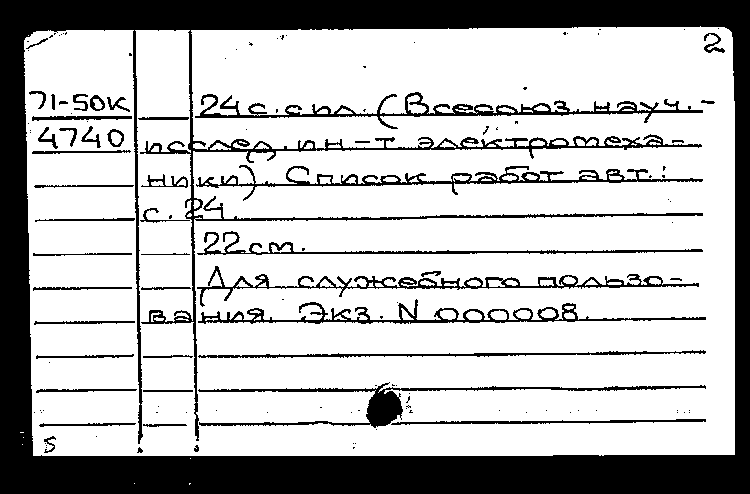 2
71-50К 24 с. с ил. (Всесоюз. науч.-
4740 исслед. ин-т электромеха-
ники). Список работ авт.:
с. 24.
22 см.
Для служебного пользо-
вания. Экз. N 000008.
S